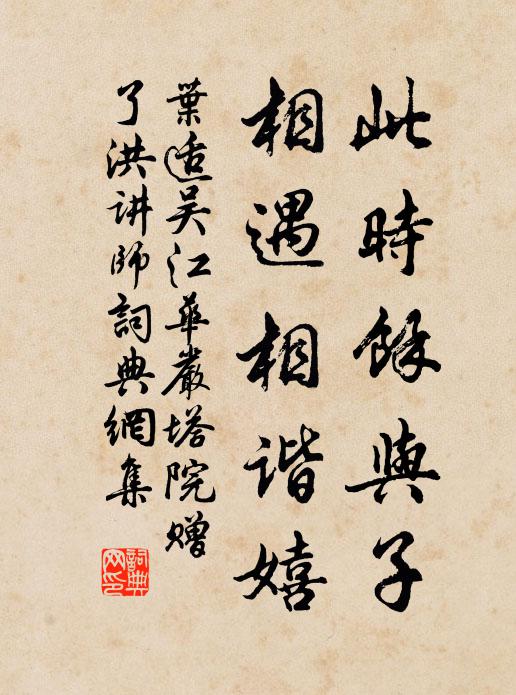 此時餘與子
相遇相谐嬉
葉适吴江華嚴塔院赠
了洪讲师詞典網集
詞典
网印